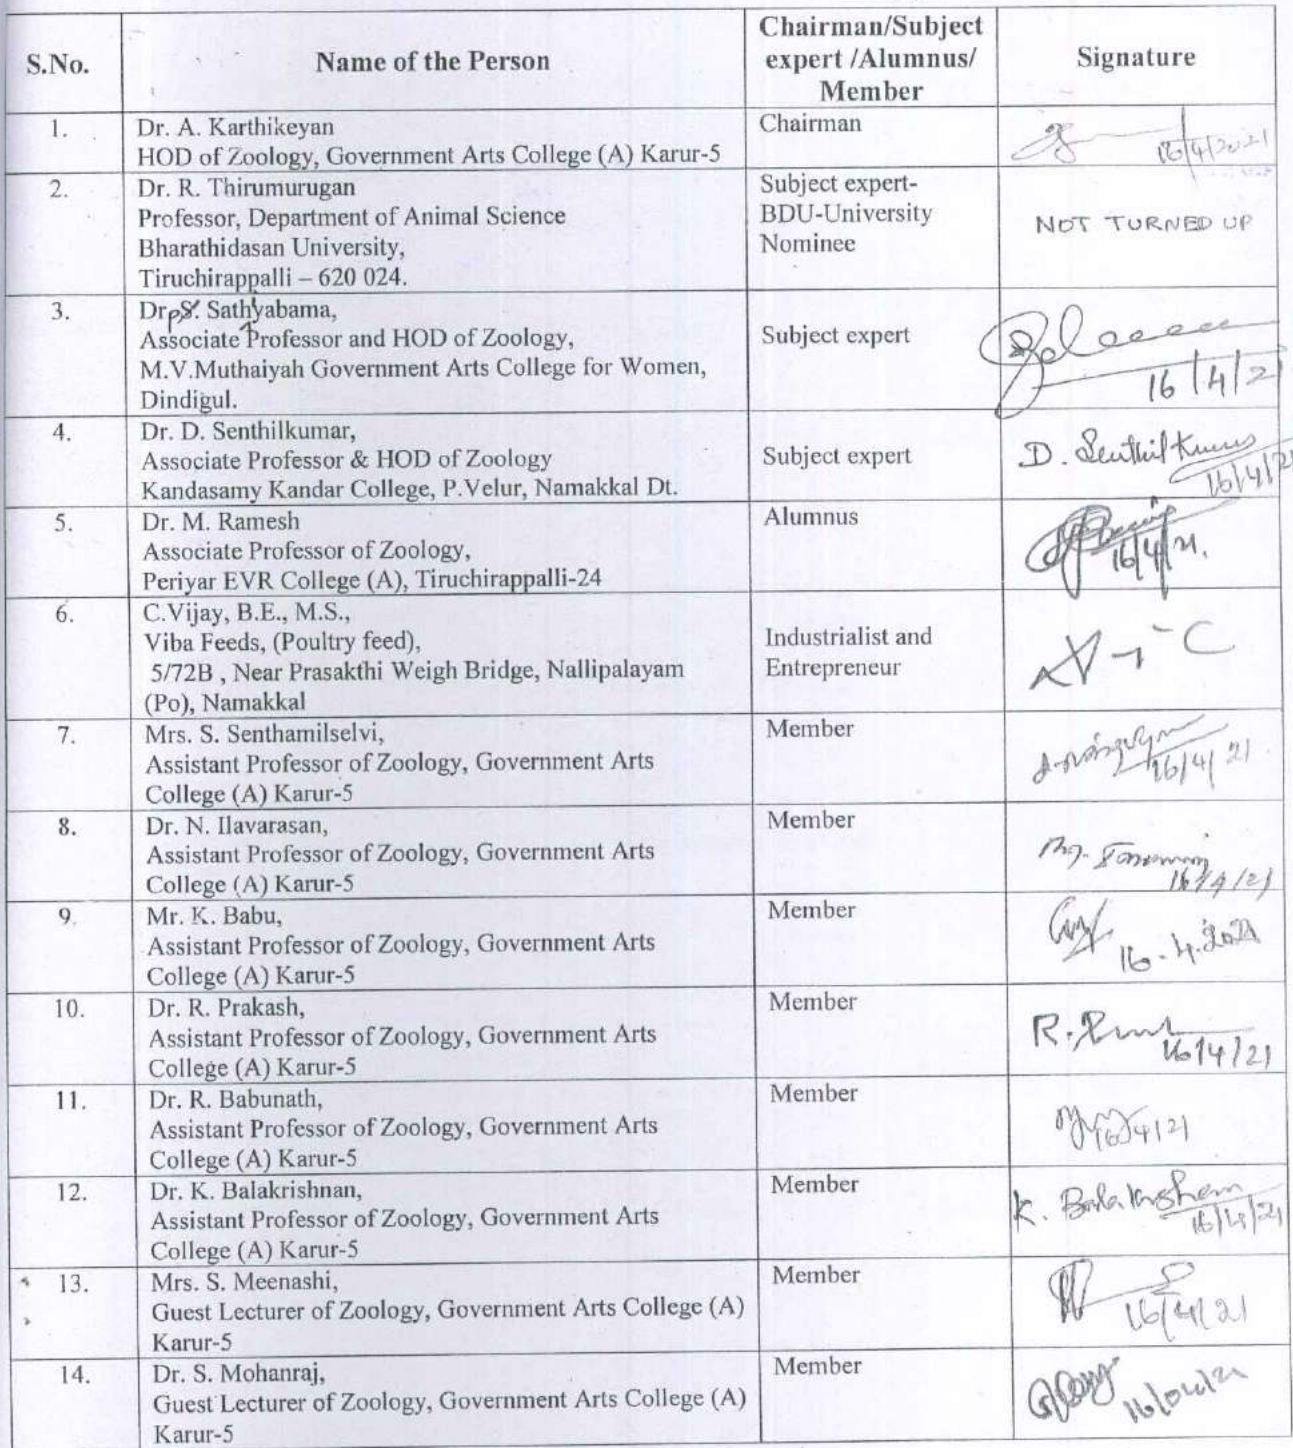 S.No.
Name of the Person
Chairman/Subject
expert /Alumnus/
Member
Signature
1.
Dr. A. Karthikeyan
HOD of Zoology, Government Arts College (A) Karur-5
Chairman
16/4/2021
2.
Dr. R. Thirumurugan
Professor, Department of Animal Science
Bharathidasan University,
Tiruchirappalli – 620 024.
Subject expert-
BDU-University
Nominee
NOT TURNED UP
3.
Dr P. Sathyabama,
Associate Professor and HOD of Zoology,
M.V.Muthaiyah Government Arts College for Women,
Dindigul.
Subject expert
16/4/21
4.
Dr. D. Senthilkumar,
Associate Professor & HOD of Zoology
Kandasamy Kandar College, P.Velur, Namakkal Dt.
Subject expert
D. Senthil Kumar
16/4/21
5.
Dr. M. Ramesh
Associate Professor of Zoology,
Periyar EVR College (A), Tiruchirappalli-24
Alumnus
16/4/21.
6.
C.Vijay, B.E., M.S.,
Viba Feeds, (Poultry feed),
5/72B , Near Prasakthi Weigh Bridge, Nallipalayam
(Po), Namakkal
Industrialist and
Entrepreneur
7.
Mrs. S. Senthamilselvi,
Assistant Professor of Zoology, Government Arts
College (A) Karur-5
Member
16/4/21.
8.
Dr. N. Ilavarasan,
Assistant Professor of Zoology, Government Arts
College (A) Karur-5
Member
16/4/21
9.
Mr. K. Babu,
Assistant Professor of Zoology, Government Arts
College (A) Karur-5
Member
16.4.2021
10.
Dr. R. Prakash,
Assistant Professor of Zoology, Government Arts
College (A) Karur-5
Member
16/4/21
11.
Dr. R. Babunath,
Assistant Professor of Zoology, Government Arts
College (A) Karur-5
Member
16/4/21
12.
Dr. K. Balakrishnan,
Assistant Professor of Zoology, Government Arts
College (A) Karur-5
Member
K. Balakrishnan
16/4/21
13.
Mrs. S. Meenashi,
Guest Lecturer of Zoology, Government Arts College (A)
Karur-5
Member
16/4/21
14.
Dr. S. Mohanraj,
Guest Lecturer of Zoology, Government Arts College (A)
Karur-5
Member
16/04/21